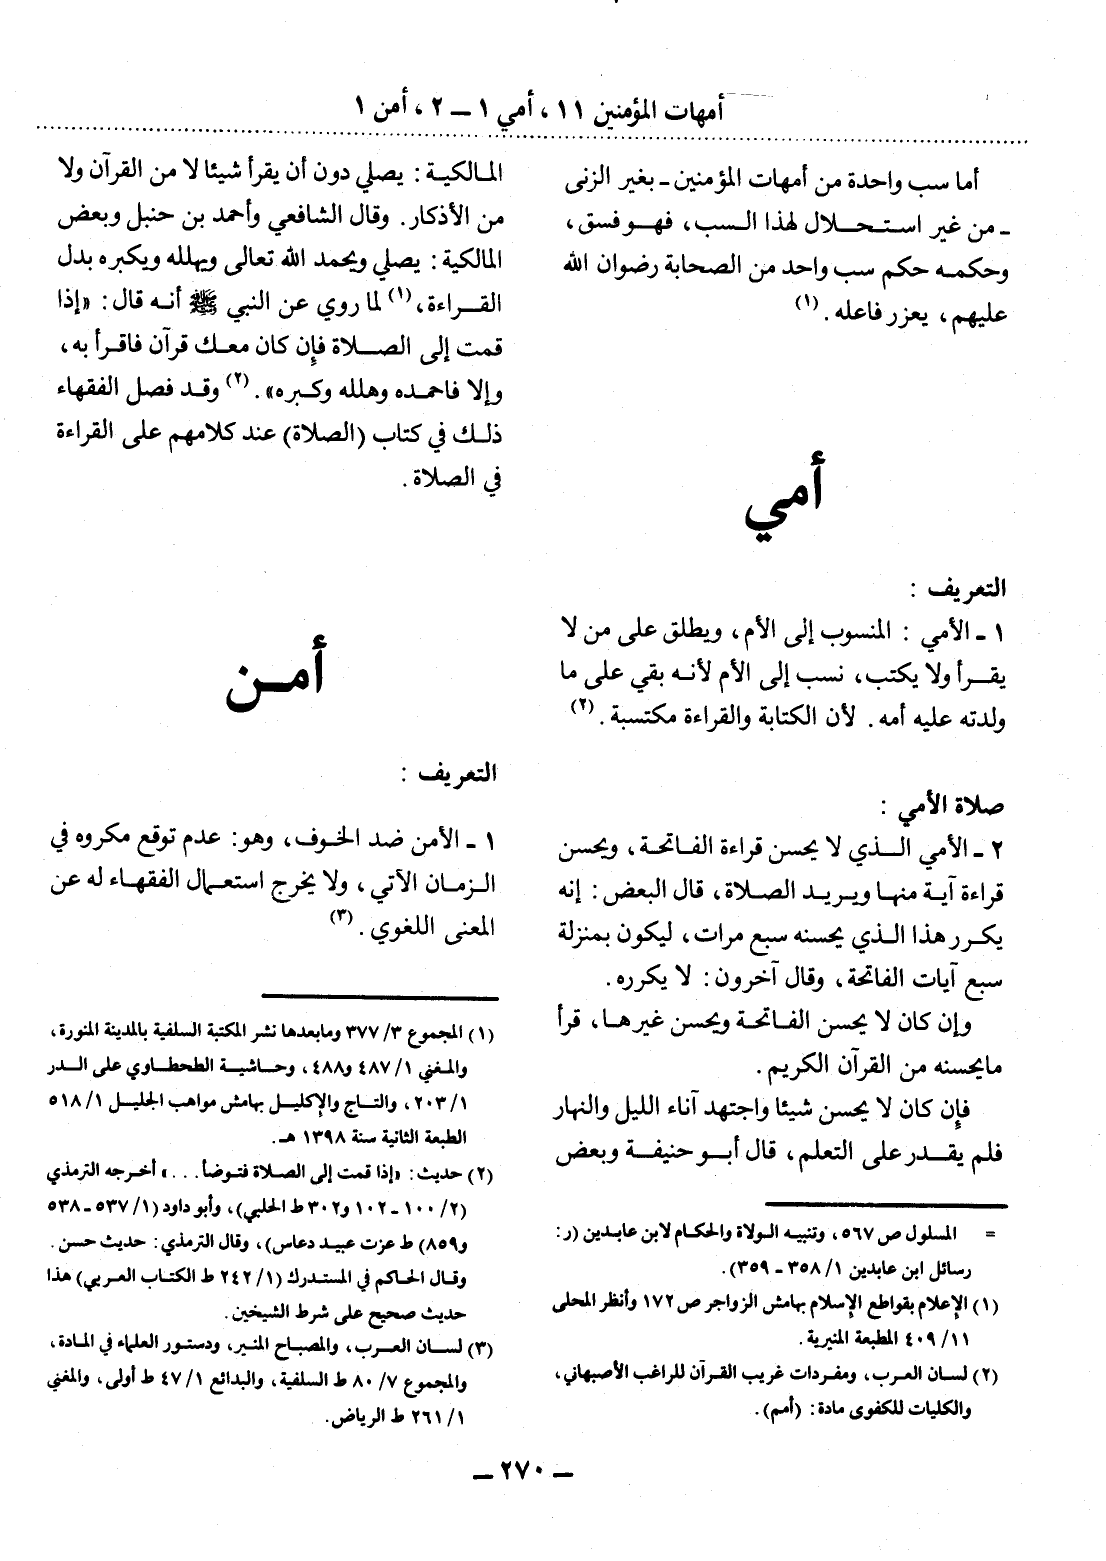 أمهات المؤمنين ١١ ، أمي ١ ــ ٢ ، أمن ١
أما سب واحدة من أمهات المؤمنين ـ بغير الزنى
ـ من غير استحلال لهذا السب ، فهو فسق ،
وحكمه حكم سب واحد من الصحابة رضوان الله
عليهم ، يعزر فاعله . (١)
أمي
التعريف :
١ ـ الأمي : المنسوب إلى الأم ، ويطلق على من لا
يقرأ ولا يكتب ، نسب إلى الأم لأنه بقي على ما
ولدته عليه أمه . لأن الكتابة والقراءة مكتسبة . (٢)
صلاة الأمي :
٢ ـ الأمي الذي لا يحسن قراءة الفاتحة ، ويحسن
قراءة آية منها ويريد الصلاة ، قال البعض : إنه
يكرر هذا الذي يحسنه سبع مرات ، ليكون بمنزلة
سبع آيات الفاتحة ، وقال آخرون : لا يكرره .
وإن كان لا يحسن الفاتحة ويحسن غيرها ، قرأ
مايحسنه من القرآن الكريم .
فإن كان لا يحسن شيئا واجتهد آناء الليل والنهار
فلم يقدر على التعلم ، قال أبو حنيفة وبعض
= المسلول ص ٥٦٧ ، وتنبيه الولاة والحكام لابن عابدين (ر :
رسائل ابن عابدين ١ / ٣٥٨ ـ ٣٥٩) .
(١) الإعلام بقواطع الإسلام بهامش الزواجر ص ١٧٢ وأنظر المحلى
١١ / ٤٠٩ المطبعة المنيرية .
(٢) لسان العرب ، ومفردات غريب القرآن للراغب الأصبهاني ،
والكليات للكفوى مادة : (أمم) .
المالكية : يصلي دون أن يقرأ شيئا لا من القرآن ولا
من الأذكار . وقال الشافعي وأحمد بن حنبل وبعض
المالكية : يصلي ويحمد الله تعالى ويهلله ويكبره بدل
القراءة ، (١) لما روي عن النبي ﷺ أنه قال : «إذا
قمت إلى الصلاة فإن كان معك قرآن فاقرأ به ،
وإلا فاحمده وهلله وكبره» . (٢) وقد فصل الفقهاء
ذلك في كتاب (الصلاة) عند كلامهم على القراءة
في الصلاة .
أمن
التعريف :
١ ـ الأمن ضد الخوف ، وهو : عدم توقع مكروه في
الزمان الآتي ، ولا يخرج استعمال الفقهاء له عن
المعنى اللغوي . (٣)
(١) المجموع ٣ / ٣٧٧ ومابعدها نشر المكتبة السلفية بالمدينة المنورة ،
والمغني ١ / ٤٨٧ و٤٨٨ ، وحاشية الطحطاوي على الدر
١ / ٢٠٣ ، والتاج والإكليل بهامش مواهب الجليل ١ / ٥١٨
الطبعة الثانية سنة ١٣٩٨ هـ .
(٢) حديث : «إذا قمت إلى الصلاة فتوضأ . . . » أخرجه الترمذي
(٢ / ١٠٠ ـ ١٠٢ و٣٠٢ ط الحلبي) ، وأبو داود (١ / ٥٣٧ ـ ٥٣٨
و٨٥٩) ط عزت عبيد دعاس) ، وقال الترمذي : حديث حسن .
وقال الحاكم في المستدرك (١ / ٢٤٢ ط الكتاب العربي) هذا
حديث صحيح على شرط الشيخين .
(٣) لسان العرب ، والمصباح المنير ، ودستور العلماء في المادة ،
والمجموع ٧ / ٨٠ ط السلفية ، والبدائع ١ / ٤٧ ط أولى ، والمغني
١ / ٢٦١ ط الرياض .
ــ ٢٧٠ ــ